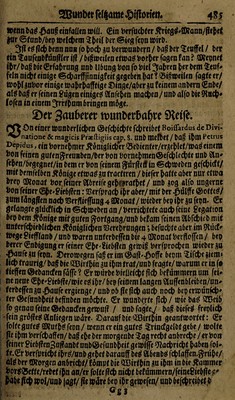 Wunder seltzame Historien. 485
wenn das Hauß einfallen will. Ein versuchter Kriegs-Mann/stehet
zur Stund/bey welchem Theil der Sieg seyn wird.
Ist es sich denn nun so hoch zu verwundern / daß der Teuffel / der
ein Tausendkünstler ist / bißweilen etwas vorher sagen kan? Meynet
ihr / daß die Erfahrung und Übung von so viel Jahren her dem Teu-
feln nicht einige Scharffsinnigkeit gegeben hat? Bißweilen sagt er /
wohl aber einige wahrhafftige Dinge/ aber zu keinem andern Ende/
als daß er seinen Lügen einiges Ansehen machen / und also die Ruch-
losen in einem Irrthum bringen möge.
Der Zauberer wunderbahre Reise.
Von einer wunderlichen Geschichte schreibet Boissardus de Divi-
natione & magicis Præstigiis cap. 5. und meldet / daß ihm Petrus
Depidius, ein vornehmer Königlicher Bedienter/erzehlet/was einem
von seinen guten Freunden/der von vornehmen Geschlecht und An-
sehen/begegnet/in dem er von seinem Fürsten in Schweden geschickt/
mit demselben Könige etwas zu tractiren / dieser hatte aber nur etwa
drey Monat vor seiner Reise geheyrathet / und zog also ungerne
von seiner Ehe-Liebsten: Versprach ihr aber / mit der Hülffe Gottes/
zum längsten nach Verfliessung 4 Monat / wieder bey ihr zu seyn. Er
gelangte glücklich in Schweden an / verrichtete auch seine Sachen
bey dem Könige mit guten Fortgang/und bekam seinen Abschied mit
unterschiedlichen Königlichen Verehrungen; besuchte aber im Rück-
wege seine Freunde / und waren unterdessen die 4 Monat verflossen /
bey Endigung er seiner Ehe-Liebsten gewiß versprochen wieder zu
Hause zu seyn. Derowegen saß er im Gast-Hofe beym Tische ziem-
lich traurig / daß die Wirthin zu ihm trat/und fragte/ warum er in so
tieffen Gedancken sässe? Er würde vielleicht sich bekümmern um sei-
ne neue Ehe-Liebste/wie es ihr/bey seinem langen Aussenbleiben/un-
terdessen zu Hause erginge / und ob sie sich auch noch bey erwünsch-
ter Gesundheit befinden möchte. Er wunderte sich / wie das Weib
so genau seine Gedancken gewust / und sagte / daß dieses freylich
sein gröstes Anliegen wäre. Darauff die Wirthin geantwortet: Er
solte gutes Muths seyn / wenn er ein gutes Trinckgeld gebe / wolte
sie ihm verschaffen/daß ehe der morgende Tag recht anbreche / er von
seiner Liebsten Zustand und Gesundheit gewisse Nachricht haben sol-
te. Er verspricht ihrs/und gehet darauff des Abends schlaffen. Frühe/
als der Morgen anbricht/ kömmt die Wirthin zu ihm in die Kammer
vors Bette/redet ihn an/er solte sich nicht bekümmern/seine Liebste ge-
habe sich wol/und sagt/ sie wäre bey ihr gewesen/ und beschreibet d
Gg 3